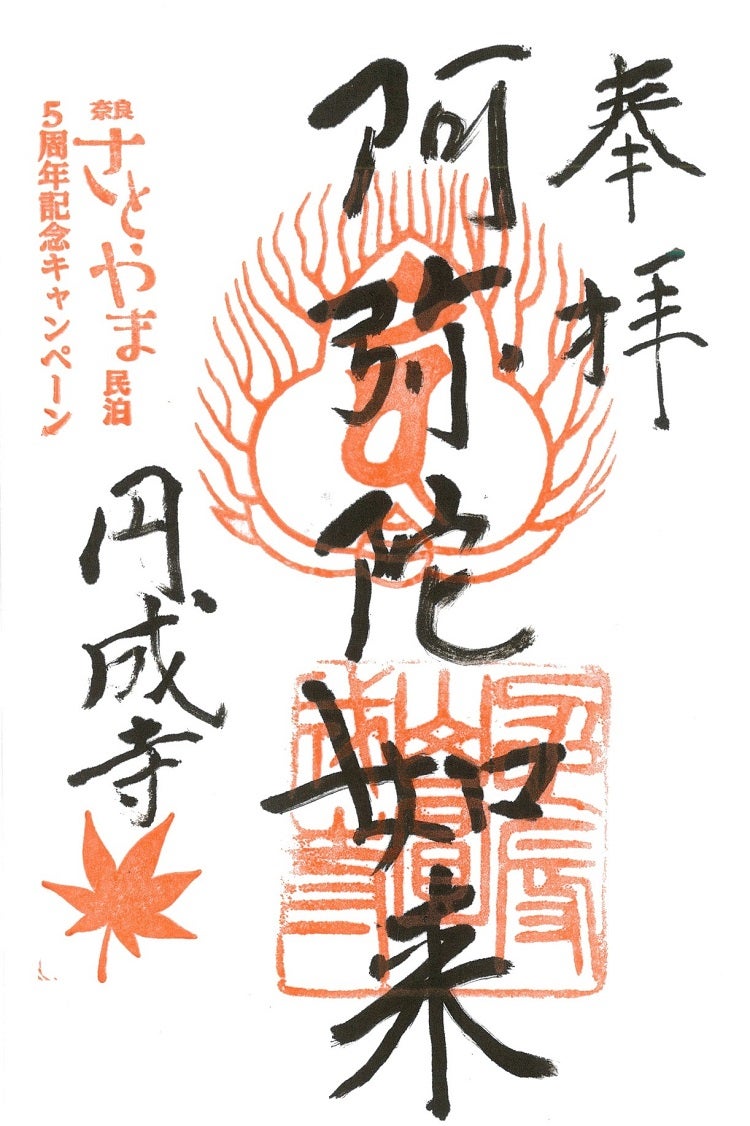 奉拝
阿弥陀如来
奈良
さとやま民泊
5周年記念キャンペーン
円成寺